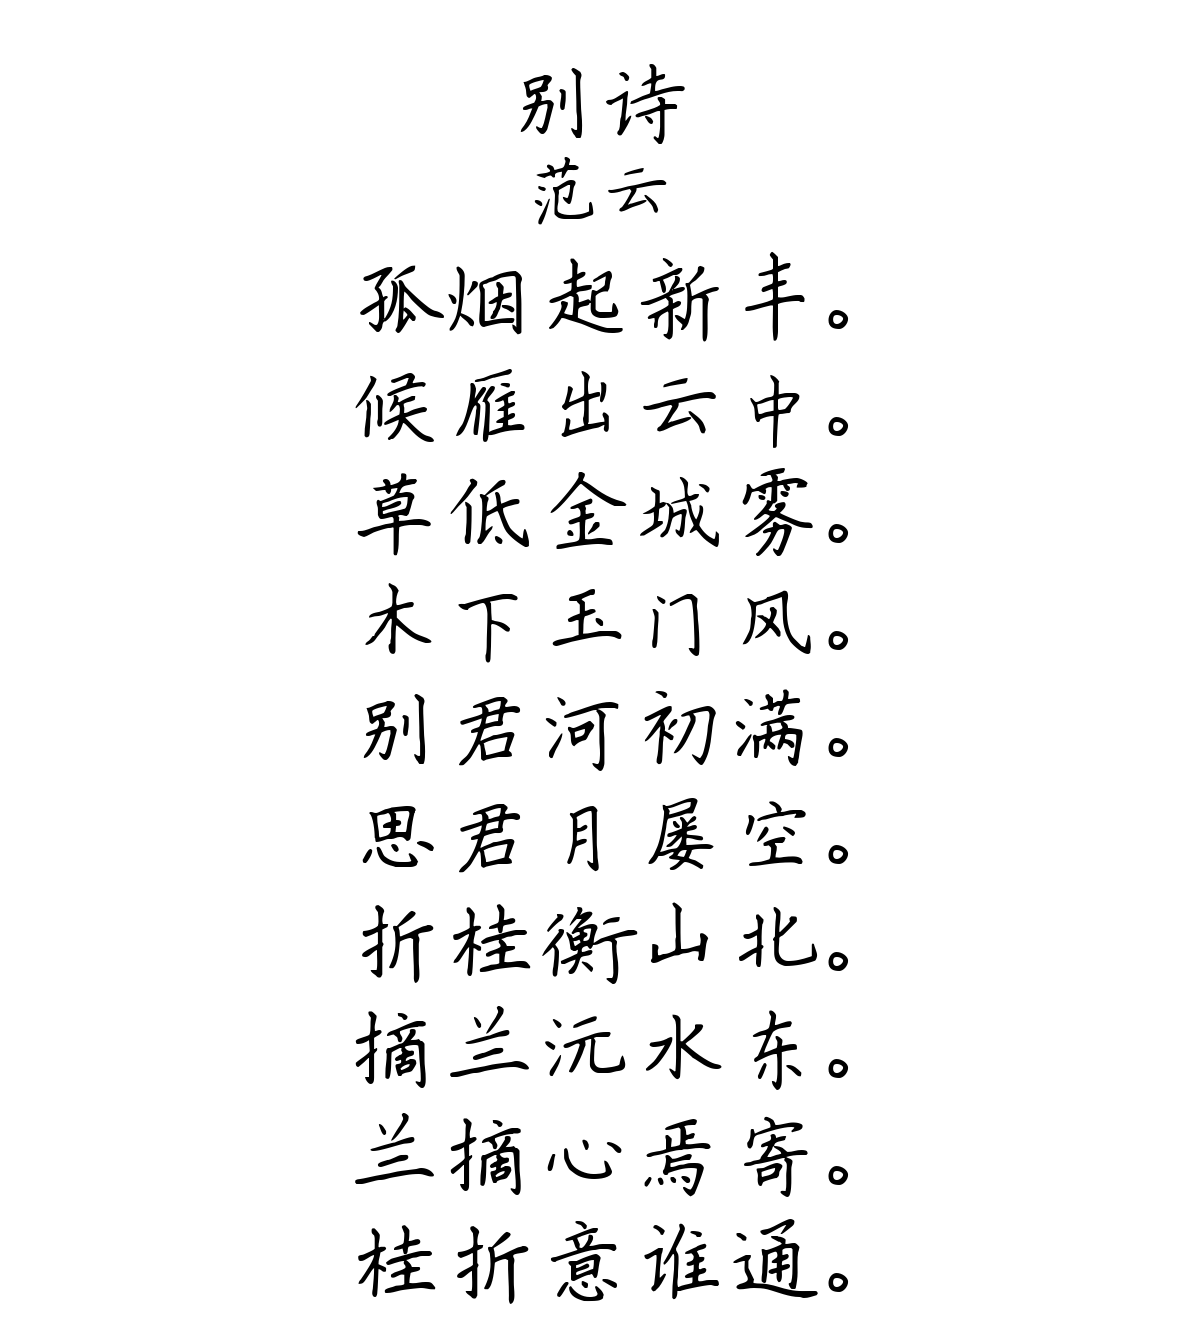 别诗
范云
孤烟起新丰。
候雁出云中。
草低金城雾。
木下玉门风。
别君河初满。
思君月屡空。
折桂衡山北。
摘兰沅水东。
兰摘心焉寄。
桂折意谁通。